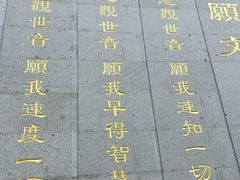 願文
悲觀世音 願我速知一切
觀世音 願我早得智慧
觀世音 願我速度一